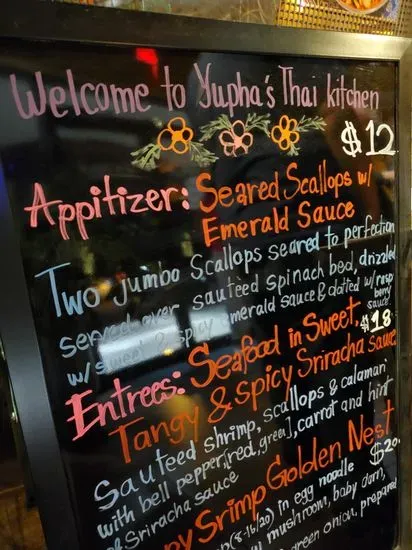 Welcome to Yupha's Thai kitchen
$12
Appitizer: Seared Scallops w/
Emerald Sauce
Two jumbo Scallops seared to perfection
served over sauteed spinach bed, drizzled
w/ sweet & spicy emerald sauce & dotted w/ rasp
berry
sauce.
Entrees: Seafood in Sweet, $18
Tangy & Spicy Sriracha sauce
Sauteed shrimp, scallops & calamari
with bell pepper[red, green], carrot and hint
of Sriracha sauce
$20
py Srimp Golden Nest
(S-16/20) in egg noodle
mushroom, baby corn,
green onion, prepared